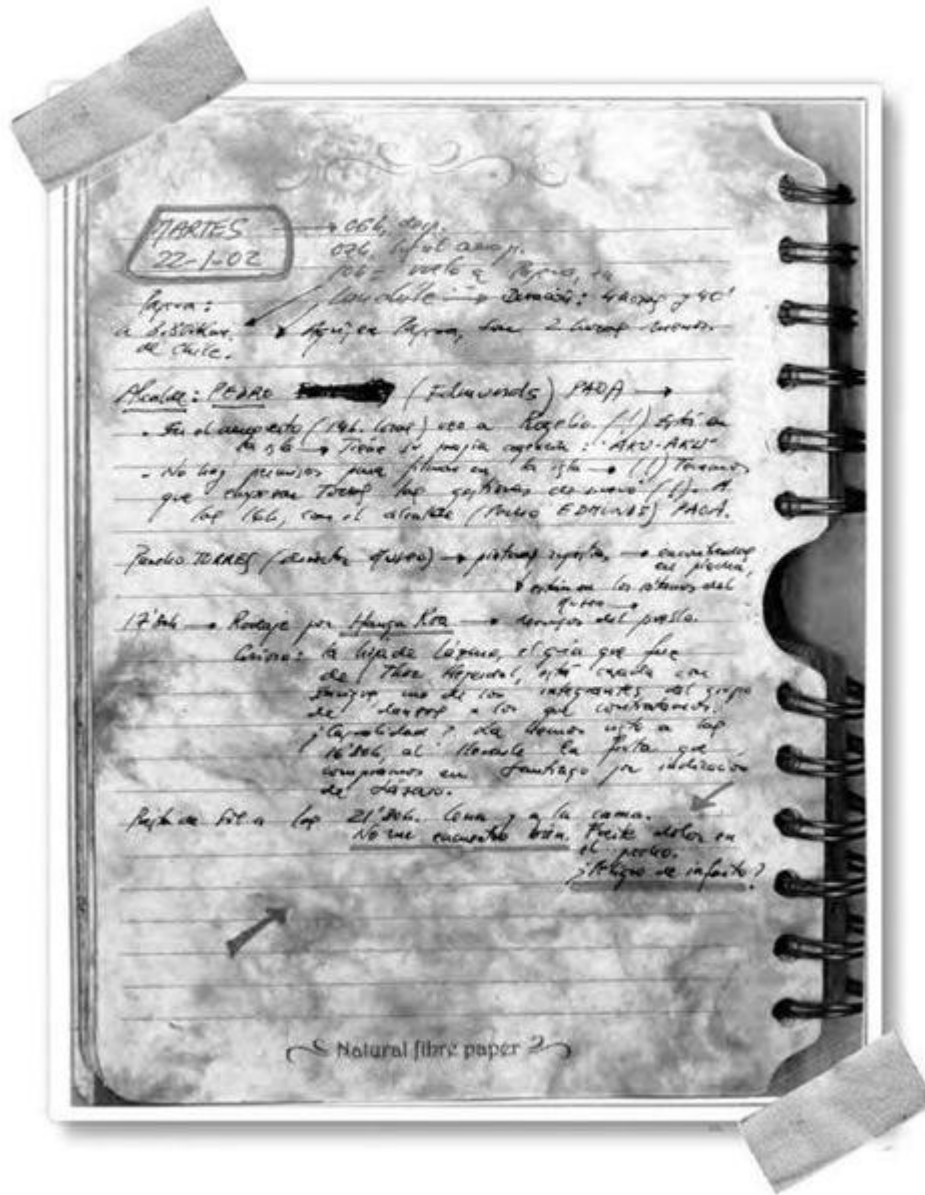 MARTES
22-1-02
→ 06h, desp.
07h, al aerop.
vuelo a Papua, en
→ Duración: 4 horas y 40'
Papua:
de Chile.
→ Papua, son 2 horas menos.
Alcalde: PEDRO (Edmunds) PAOA →
• En el aeropuerto (14h. local) veo a Rogelio (!) Está en
la isla → Tiene su propia agencia: "AKU-AKU"
• No hay permisos para filmar en la isla → (!) Tenemos
que empezar todas las gestiones de nuevo (!). A
las 16h, con el alcalde (PEDRO EDMUNDS) PAOA.
TORRES (director Museo) → pinturas → encontradas
en piedra,
están en los sótanos del
Museo →
→ Rodaje por Hanga Roa → del pueblo.
Curioso: la hija de Lázaro, el guía que fue
de Thor Heyerdal, está casada con
Enrique, uno de los integrantes del grupo
de danzas a los que contratamos.
¿Casualidad? La hemos visto a las
16'30h, al llevarle la que
compramos en Santiago por indicación
de Lázaro.
a las 21'30h. Cena y a la cama.
No me encuentro bien. Fuerte dolor en
el pecho.
¿Peligro de infarto?
Natural fibre paper